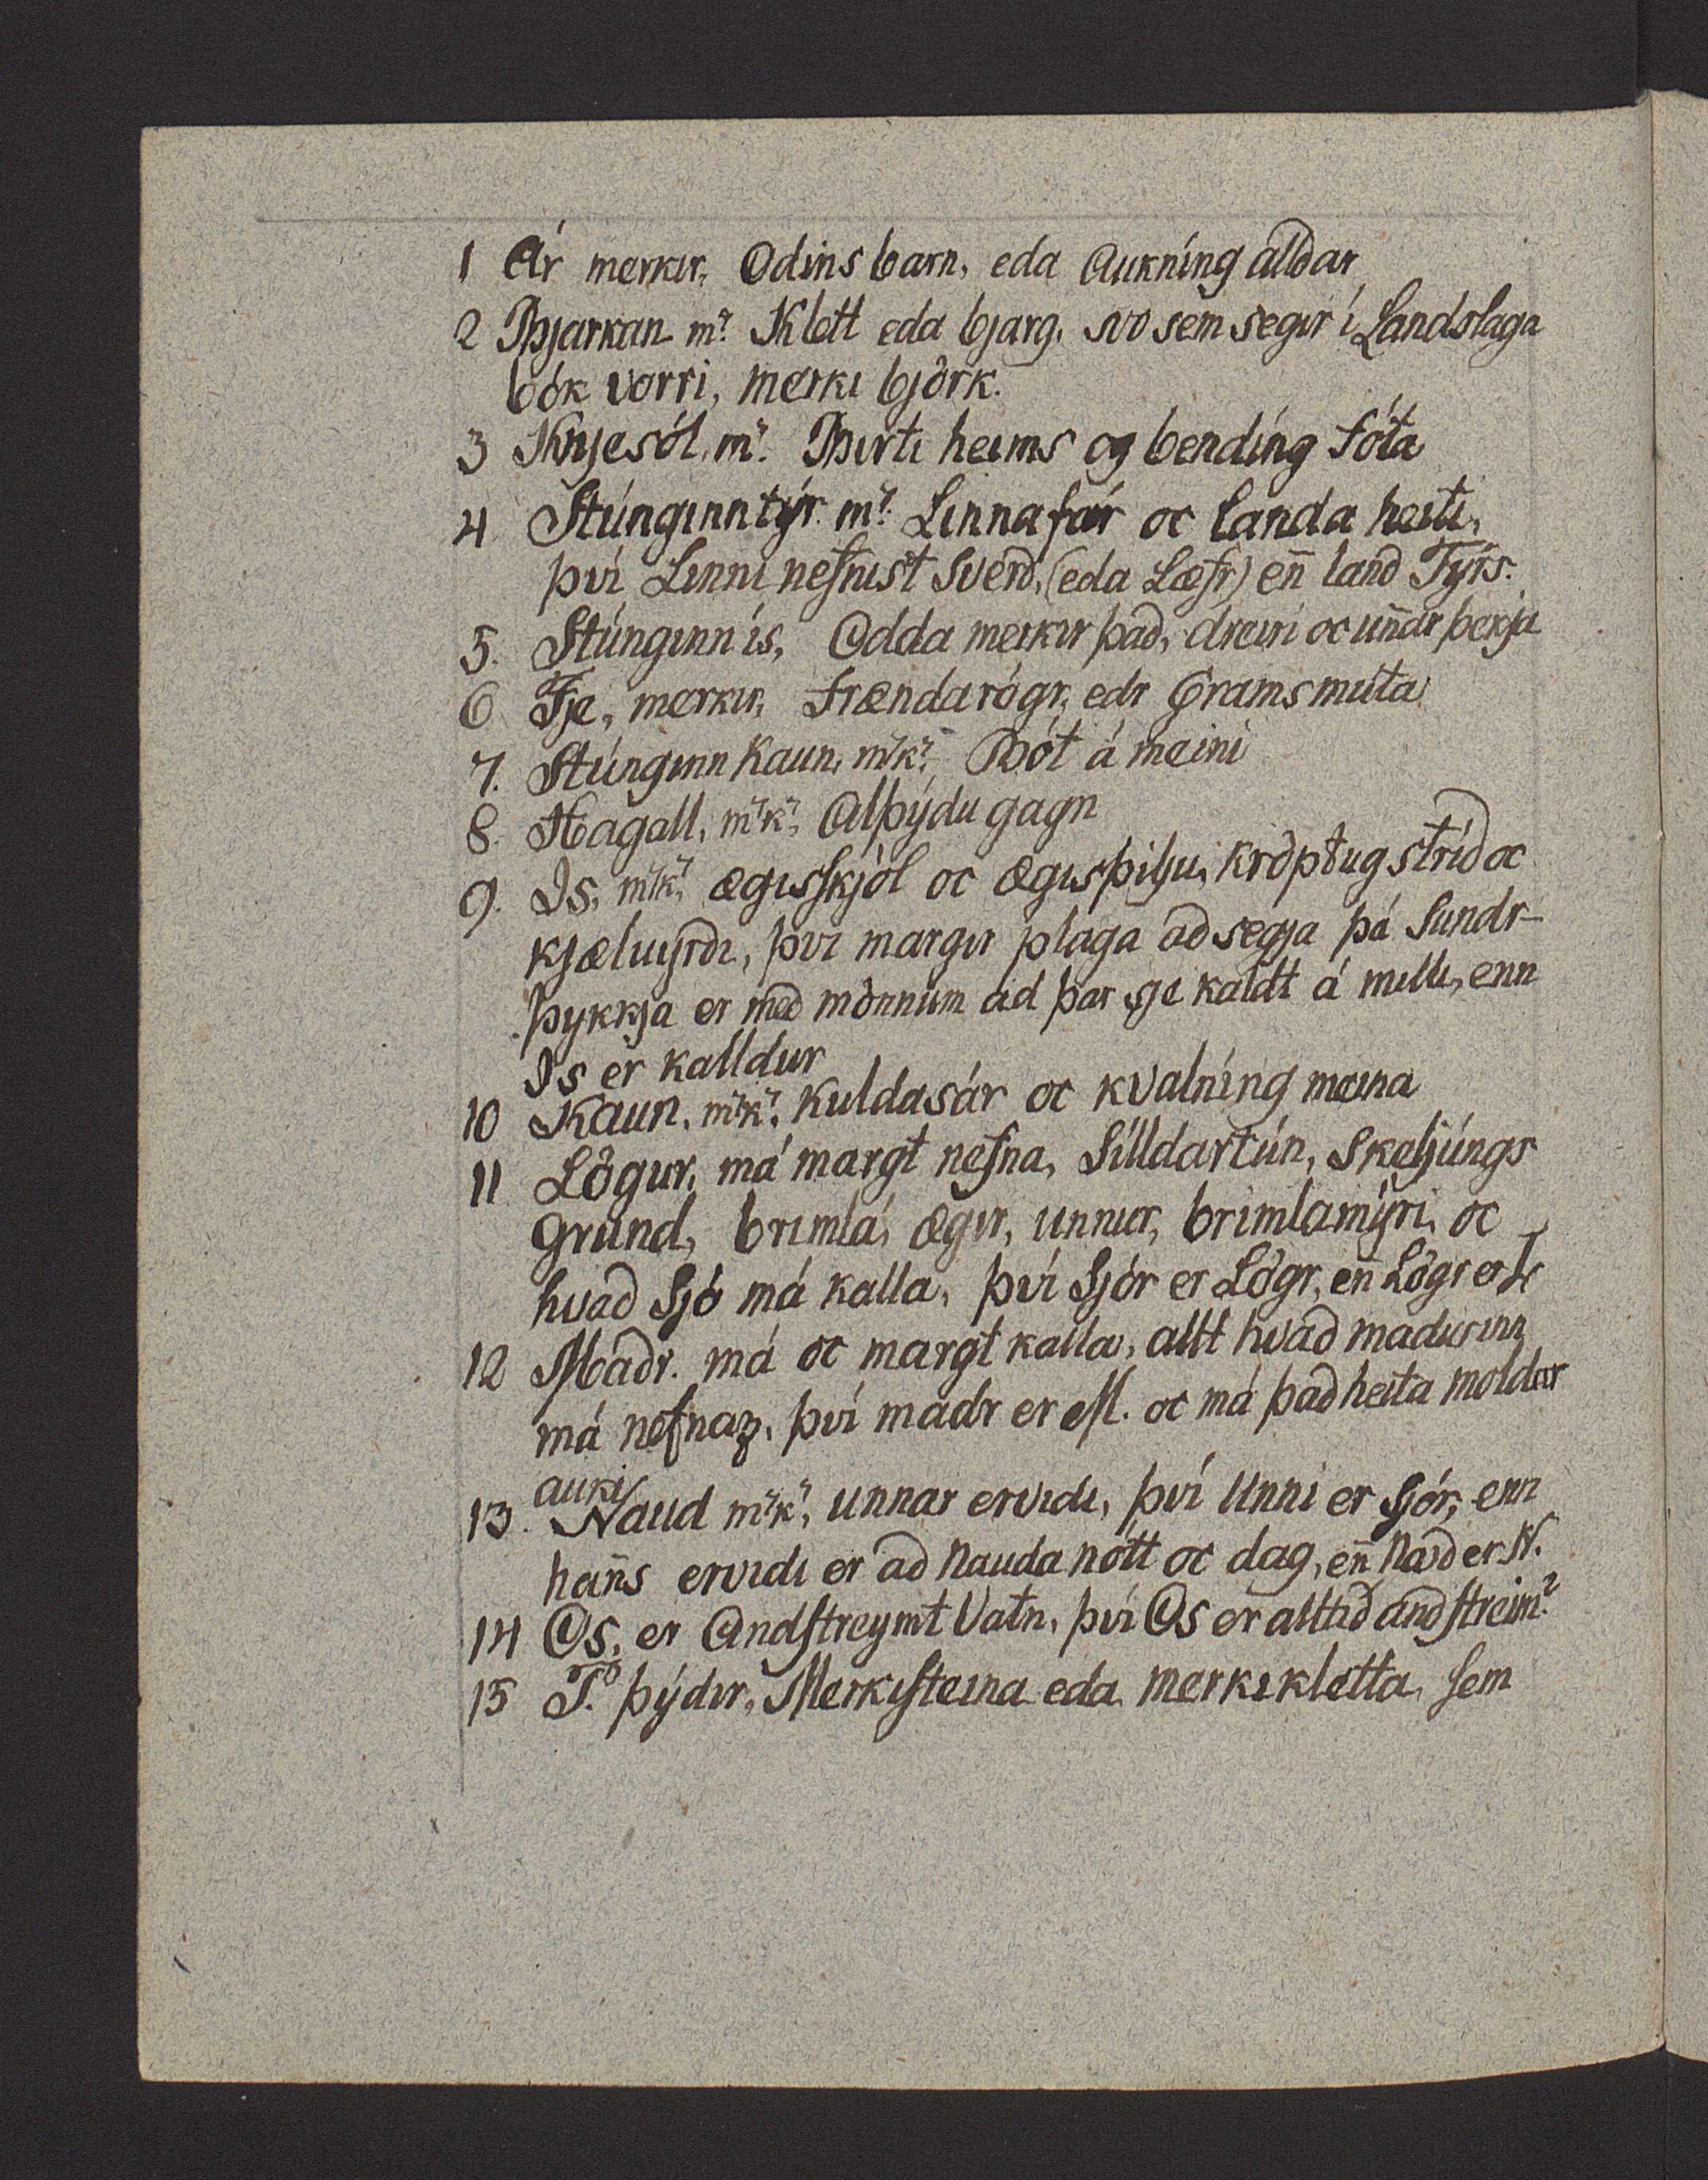 1 Ár merkir, Odins barn, eda Aukníng alldar
2 Bjarkan m.r Klett eda bjarg, svo sem segir í Landslaga
bók vorri, merki björk.
3 Knjesól, m.r Birti heims og bendíng fóta
4 Stúnginn týr. m.r Linna fár oc landa heiti,
því Linni nefnist Sverd, (eda Læfr) en̄ land Týrs.
5. Stúnginn ís, Odda merkir þad, dreiri oc un̄dar þekja
6 Fje, merkir, frænda rógr, edr Grams muta
7. Stúnginn Kaun, m.r k.r Bót á meini
8. Hagall, m.r k.r, Alþýdu gagn
9. Is, m.r k.r, ægisskjól oc ægisþilju, kröptug stríd oc
kjæluyrdi, því margir plaga ad segja þá Sundr-
þykkja er med mönnum ad þar sje kaldt á milli, enn
Is er kalldur
10 Kaun, m.r k.r, Kuldasár oc kvalníng meina
11 Lögur, má margt nefna, Silldartún, Skeljúngs
grund, brimlá, ægir, unnur, brimlamýri, oc
hvad Sjó má kalla, því Sjór er Lögr, en̄ Lögr er L
12 Madr. má oc margt kalla, allt hvad madurinn
má nefnaz, því madr er M. oc má þad heita moldar
auki
13. Naud m.r k.r, unnar ervidi, því Unni er Sjór, enn
han̄s ervidi er ad Nauda nótt oc dag, en̄ Naud er N.
14 Os, er Andstreymt Vatn, því Os er alltíd andstreim.r
15 T. þýdir, Merkisteina eda merkikletta, sem